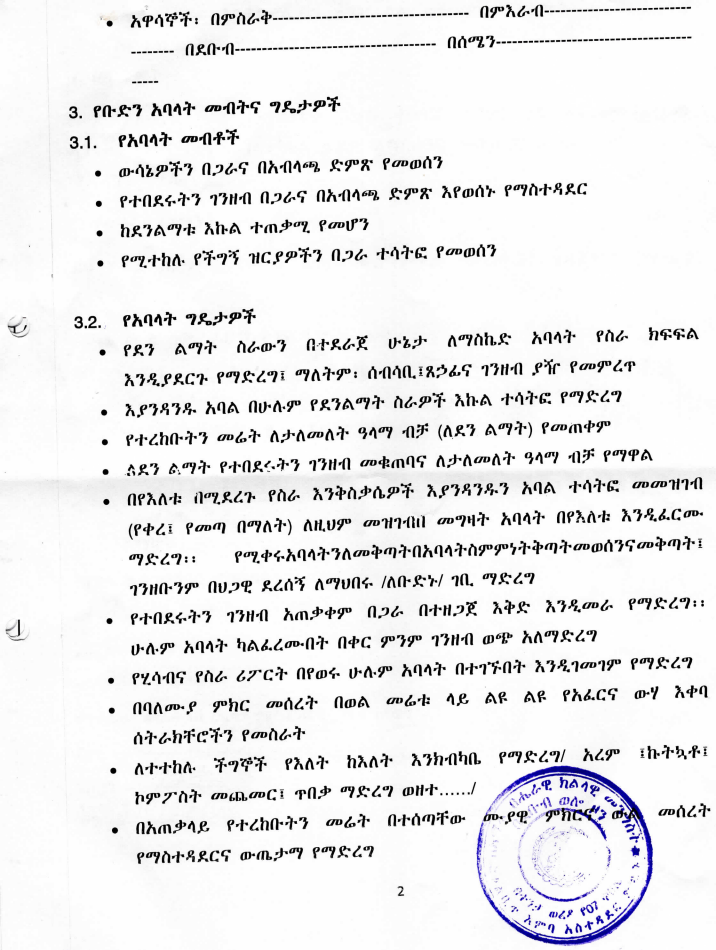 • አዋሳኞች፡ በምስራቅ----------------------------------- በምእራብ--------------------------
-------- በደቡብ------------------------------------ በሰሜን-----------------------------------
-----
3. የቡድን አባላት መብትና ግዴታዎች
3.1. የአባላት መብቶች
• ውሳኔዎችን በጋራና በአብላጫ ድምጽ የመወሰን
• የተበደሩትን ገንዘብ በጋራና በአብላጫ ድምጽ እየወሰኑ የማስተዳደር
• ከደንልማቱ እኩል ተጠቃሚ የመሆን
• የሚተከሉ የችግኝ ዝርያዎችን በጋራ ተሳትፎ የመወሰን
3.2. የአባላት ግዴታዎች
• የደን ልማት ስራውን በተደራጀ ሁኔታ ለማስኬድ አባላት የስራ ክፍፍል
እንዲያደርጉ የማድረግ፤ ማለትም፡ ሰብሳቢ፤ጸኃፊና ገንዘብ ያዥ የመምረጥ
• እያንዳንዱ አባል በሁሉም የደንልማት ስራዎች እኩል ተሳትፎ የማድረግ
• የተረከቡትን መሬት ለታለመለት ዓላማ ብቻ (ለደን ልማት) የመጠቀም
• ለደን ልማት የተበደሩትን ገንዘብ መቁጠባና ለታለመለት ዓላማ ብቻ የማዋል
• በየእለቱ በሚደረጉ የስራ እንቅስቃሴዎች እያንዳንዱን አባል ተሳትፎ መመዝገብ
(የቀረ፤ የመጣ በማለት) ለዚህም መዝገብበ መግዛት አባላት በየእለቱ እንዲፈርሙ
ማድረግ፡፡ የሚቀሩአባላትንለመቅጣትበአባላትስምምነትቅጣትመወሰንናመቅጣት፤
ገንዘቡንም በህጋዊ ደረሰኝ ለማህበሩ /ለቡድኑ/ ገቢ ማድረግ
• የተበደሩትን ገንዘብ አጠቃቀም በጋራ በተዘጋጀ እቅድ እንዲመራ የማድረግ፡፡
ሁሉም አባላት ካልፈረሙበት በቀር ምንም ገንዘብ ወጭ አለማድረግ
• የሂሳብና የስራ ሪፖርት በየወሩ ሁሉም አባላት በተገኙበት እንዲገመገም የማድረግ
• በባለሙያ ምክር መሰረት በወል መሬቱ ላይ ልዩ ልዩ የአፈርና ውሃ እቀባ
ሰትራክቸሮችን የመስራት
• ለተተከሉ ችግኞች የእለት ከእለት እንክብካቤ የማድረግ/ አረም ፤ኩትኳቶ፤
ኮምፖስት መጨመር፤ ጥበቃ ማድረግ ወዘተ....../
• በአጠቃላይ የተረከቡትን መሬት በተሰጣቸው ሙያዊ ምክርና ውል መሰረት
የማስተዳደርና ውጤታማ የማድረግ
ክልላዊ መንግስት
ወሎ ዞን
ወረዳ የ07
አምባ አስተዳደር
2